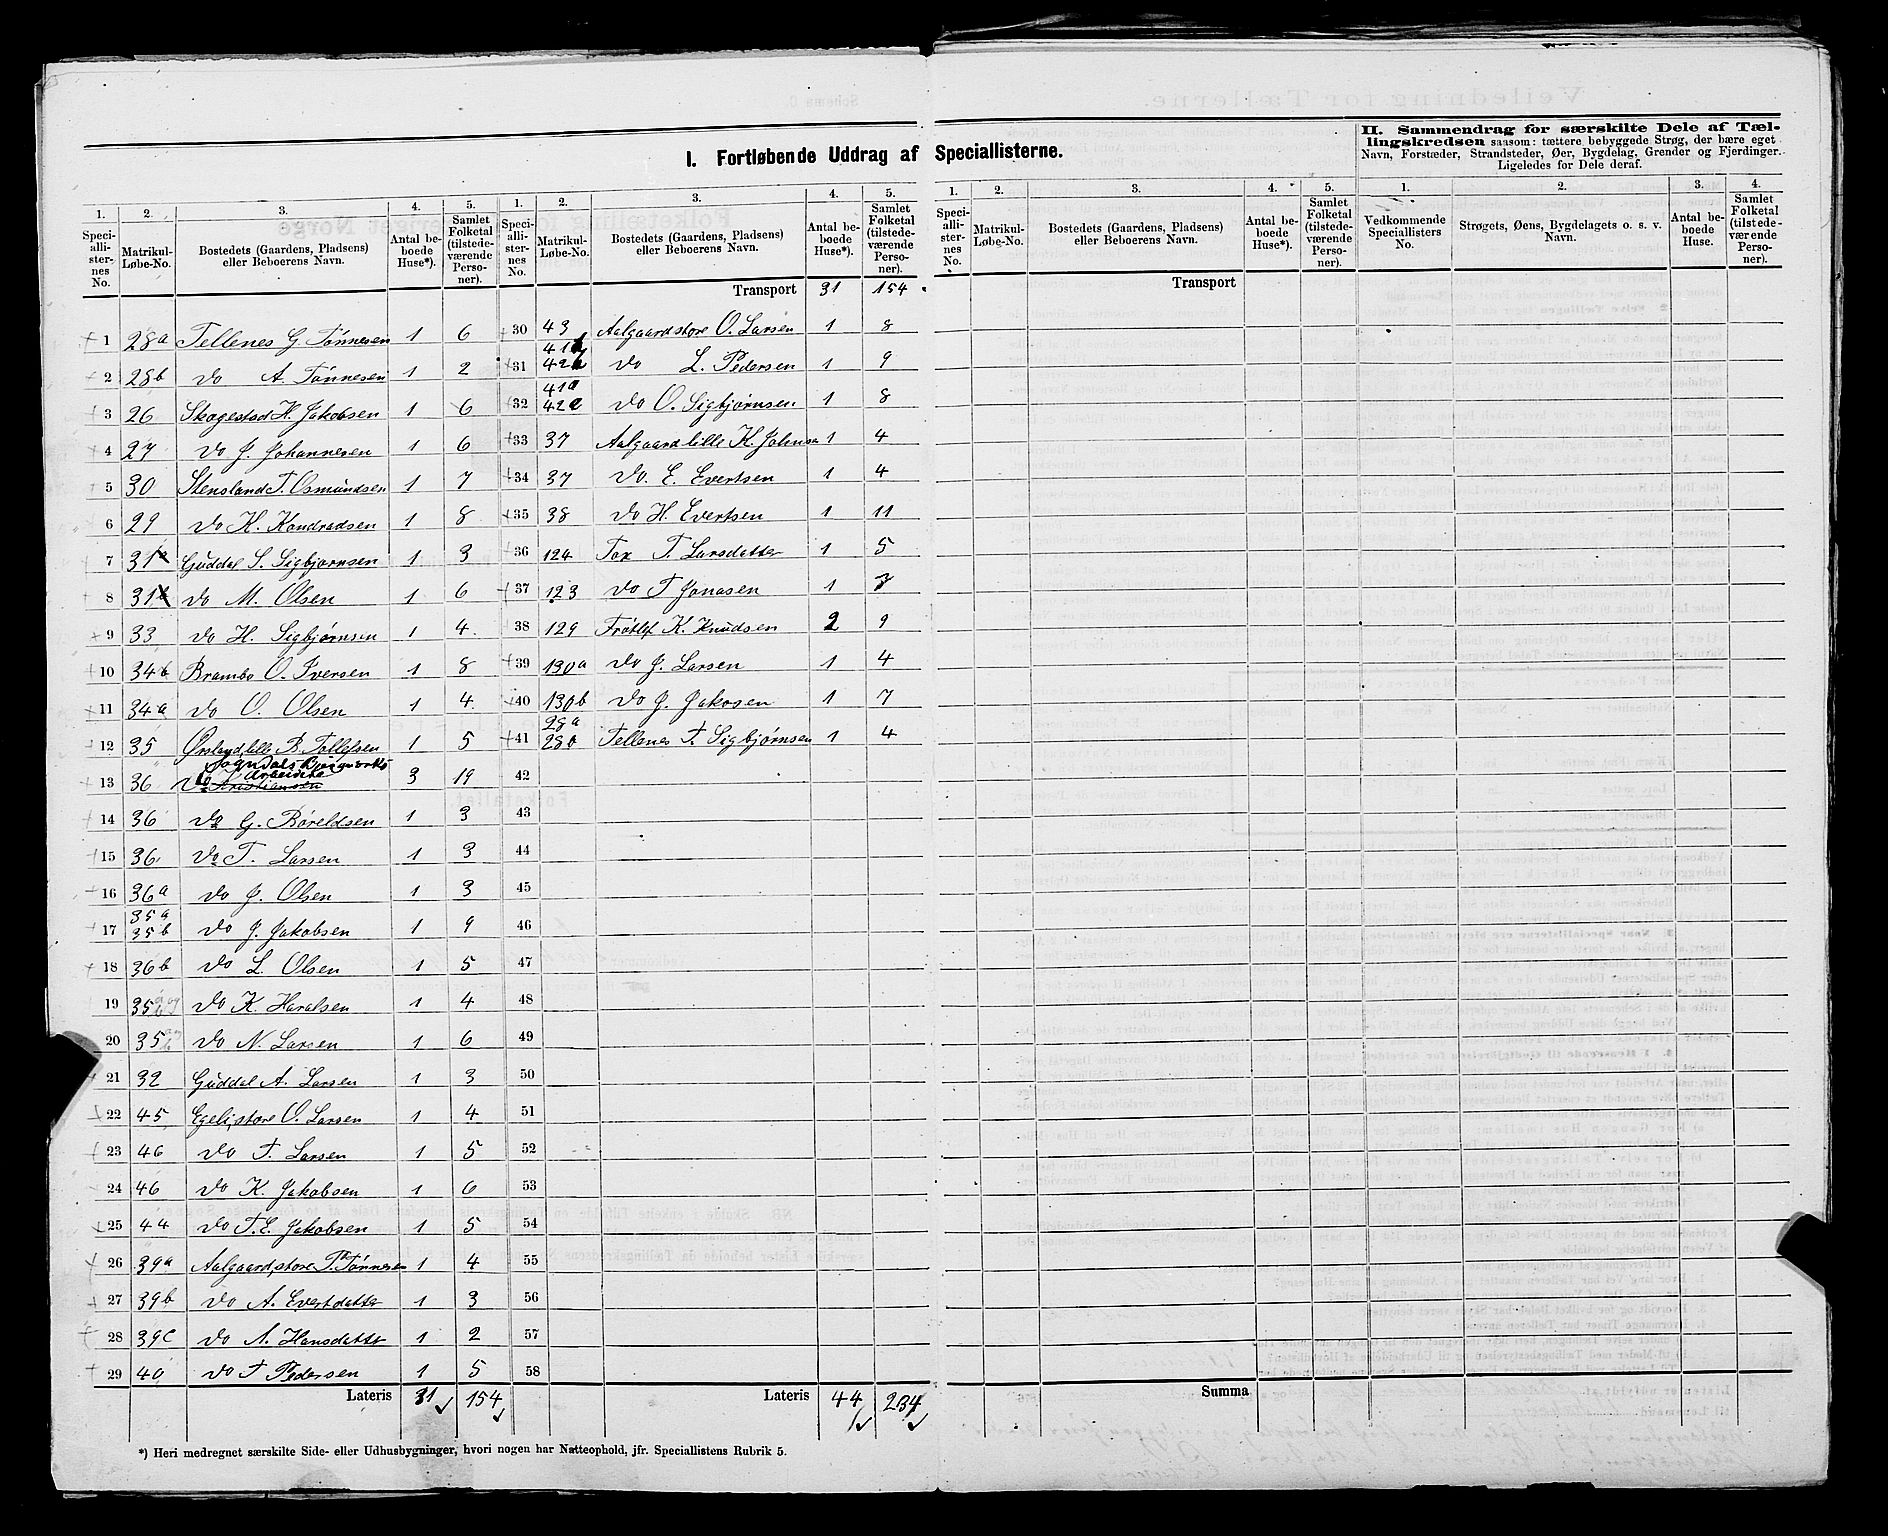 I. Fortløbende Uddrag af Speciallisterne.
II. Sammendrag for særskilte Dele af Tæl-
lingskredsen saasom: tættere bebyggede Strøg, der bære eget
Navn, Forstæder, Strandsteder, Øer, Bygdelag, Grender og Fjerdinger.
Ligeledes for Dele deraf.
1. 2. 3. 4. 5. 1. 2. 3. 4. 5. 1. 2. 3. 4. 5. 1. 2. 3. 4.
Speci-allister-nes No. Matrikul-Løbe-No. Bostedets (Gaardens, Pladsens) eller Beboerens Navn. Antal be-boede Huse*). Samlet Folketal (tilstede-værende Perso-ner).
Speci-allister-nes No. Matrikul-Løbe-No. Bostedets (Gaardens, Pladsens) eller Beboerens Navn. Antal be-boede Huse*). Samlet Folketal (tilstede-værende Perso-ner).
Speci-allister-nes No. Matrikul-Løbe-No. Bostedets (Gaardens, Pladsens) eller Beboerens Navn. Antal be-boede Huse*). Samlet Folketal (tilstede-værende Perso-ner).
Vedkommende Speciallisters No. Strøgets, Øens, Bygdelagets o. s. v. Navn. Antal beboede Huse. Samlet Folketal (tilstede-værende Personer).
1 28a Tellenes G. Tønnesen 1 6
2 28b do A. Tønnesen 1 2
3 26 Skogestad H. Jakobsen 1 6
4 27 do J. Johannesen 1 6
5 30 Stensland T. Osmundsen 1 7
6 29 do K. Kondradsen 1 8
7 31 Guddal S. Sigbjørnsen 1 3
8 31 do M. Olsen 1 6
9 33 do H. Sigbjørnsen 1 4
10 34b Brambo O. Iversen 1 8
11 34a do O. Olsen 1 4
12 35 Ørsland,lille B. Tollefsen 1 5
Sogndals Bergværks
13 36 do Arbeidere Kristiansen 3 19
14 36 do G. Båreldsen 1 3
15 36 do T. Larsen 1 3
16 36a do J. Olsen 1 3
17 35a 35b do J. Jakobsen 1 9
18 36b do L. Olsen 1 5
19 35 do K. Haralsen 1 4
20 35 do N. Larsen 1 6
21 32 Guddal A. Larsen 1 3
22 45 Egeli,store O. Larsen 1 4
23 46 do T. Larsen 1 5
24 46 do K. Jakobsen 1 6
25 44 do T.E. Jakobsen 1 5
26 39a Aalgaard,store T. Tønnesen 1 4
27 39b do A. Evertdatter 1 3
28 39c do A. Hansdatter 1 2
29 40 do T Pedersen 1 5
Lateris 31 154
Transport 31 154
30 43 Aalgaardstore O. Larsen 1 8
31 41b 42b do L. Pedersen 1 9
32 41a 42a do O. Sigbjørnsen 1 8
33 37 Aalgaardlille K. Johnsen 1 4
34 37 do. E. Evertsen 1 4
35 38 do H. Evertsen 1 11
36 124 Tox T. Larsdatter 1 5
37 123 do T Jonasen 1 7
38 129 Frøtlef K. Knudsen 2 9
39 130a do J. Larsen 1 4
40 130b do J. Jakosen 1 7
41 28a 28b Tellenes T. Sigbjørnsen 1 4
42
43
44
45
46
47
48
49
50
51
52
53
54
55
56
57
58
Lateris 44 234
Transport
Summa
*) Heri medregnet særskilte Side- eller Udhusbygninger, hvori nogen har Natteophold, jfr. Speciallistens Rubrik 5.